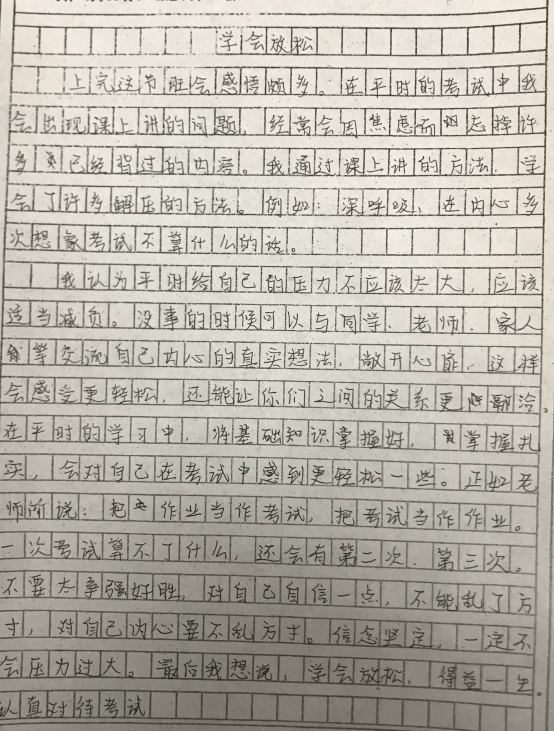 学会放松
上完这节班会感悟颇多。在平时的考试中我
会出现课上讲的问题，经常会因焦虑而忘掉许
多已经背过的内容。我通过课上讲的方法，学
会了许多解压的方法。例如：深呼吸、在内心多
次想象考试不算什么的话。
我认为平时给自己的压力不应该太大，应该
适当减负。没事的时候可以与同学、老师、家人
等交流自己内心的真实想法，敞开心扉，这样
会感受更轻松，还能让你们之间的关系更融洽。
在平时的学习中，将基础知识掌握好，掌握扎
实，会对自己在考试中感到更轻松一些。正如老
师所说：把作业当作考试，把考试当作作业。
一次考试算不了什么，还会有第二次、第三次。
不要太争强好胜，对自己自信一点，不能乱了方
寸，对自己内心要不乱方寸。信念坚定，一定不
会压力过大。最后我想说，学会放松，得益一生。
认真对待考试